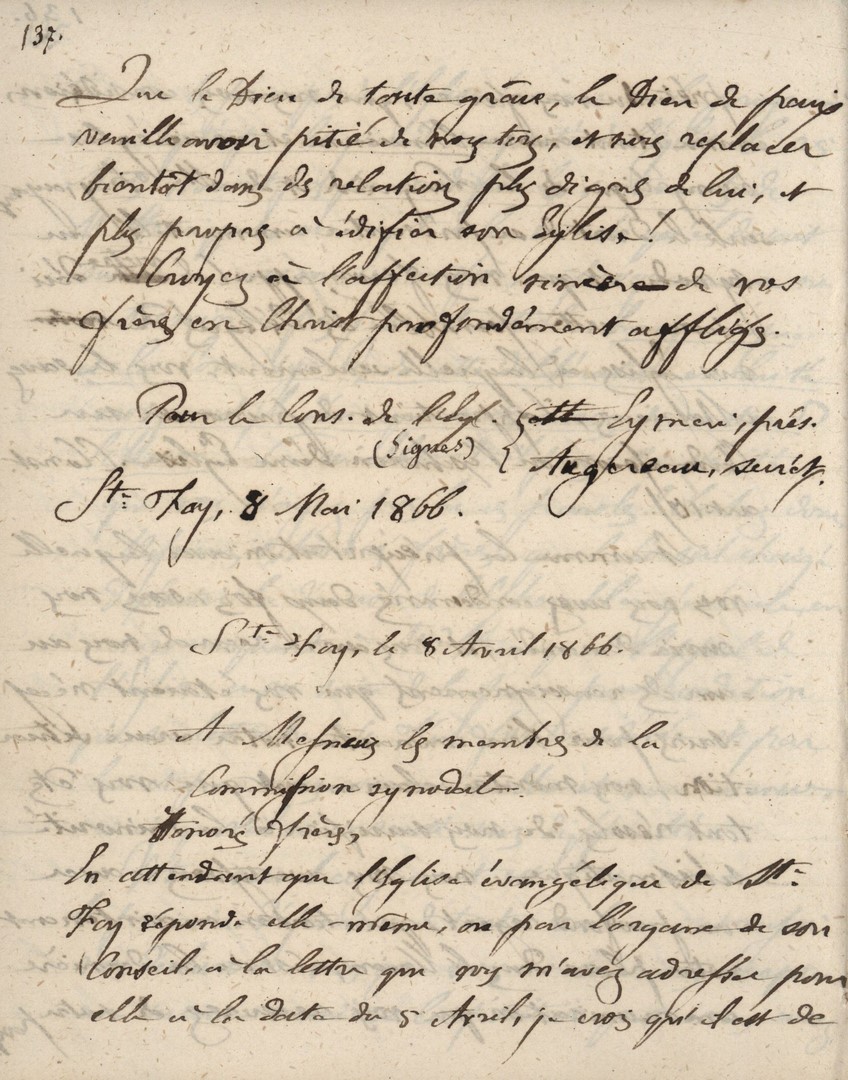 137.
Que le Dieu de toute grâce, le Dieu de paix
veuille avoir pitié de nous tous, et nous replacer
bientôt dans des relations plus dignes de lui, et
plus propres à édifier son Eglise!
Croyez à l'affection sincère de vos
frères en Christ profondément affligés.
Pour le Cons. de l'Egl. { Eymeri, prés.
(Signés) { Augereau, secrét.
Ste Foy, 8 Mai 1866.
Ste Foy, le 8 Avril 1866.
A Messieurs les membres de la
Commission synodale.
Honorés frères,
En attendant que l'Eglise évangélique de Ste
Foy réponde elle-même, ou par l'organe de son
Conseil, à la lettre que vous m'avez adressée pour
elle à la date du 5 Avril, je crois qu'il est de